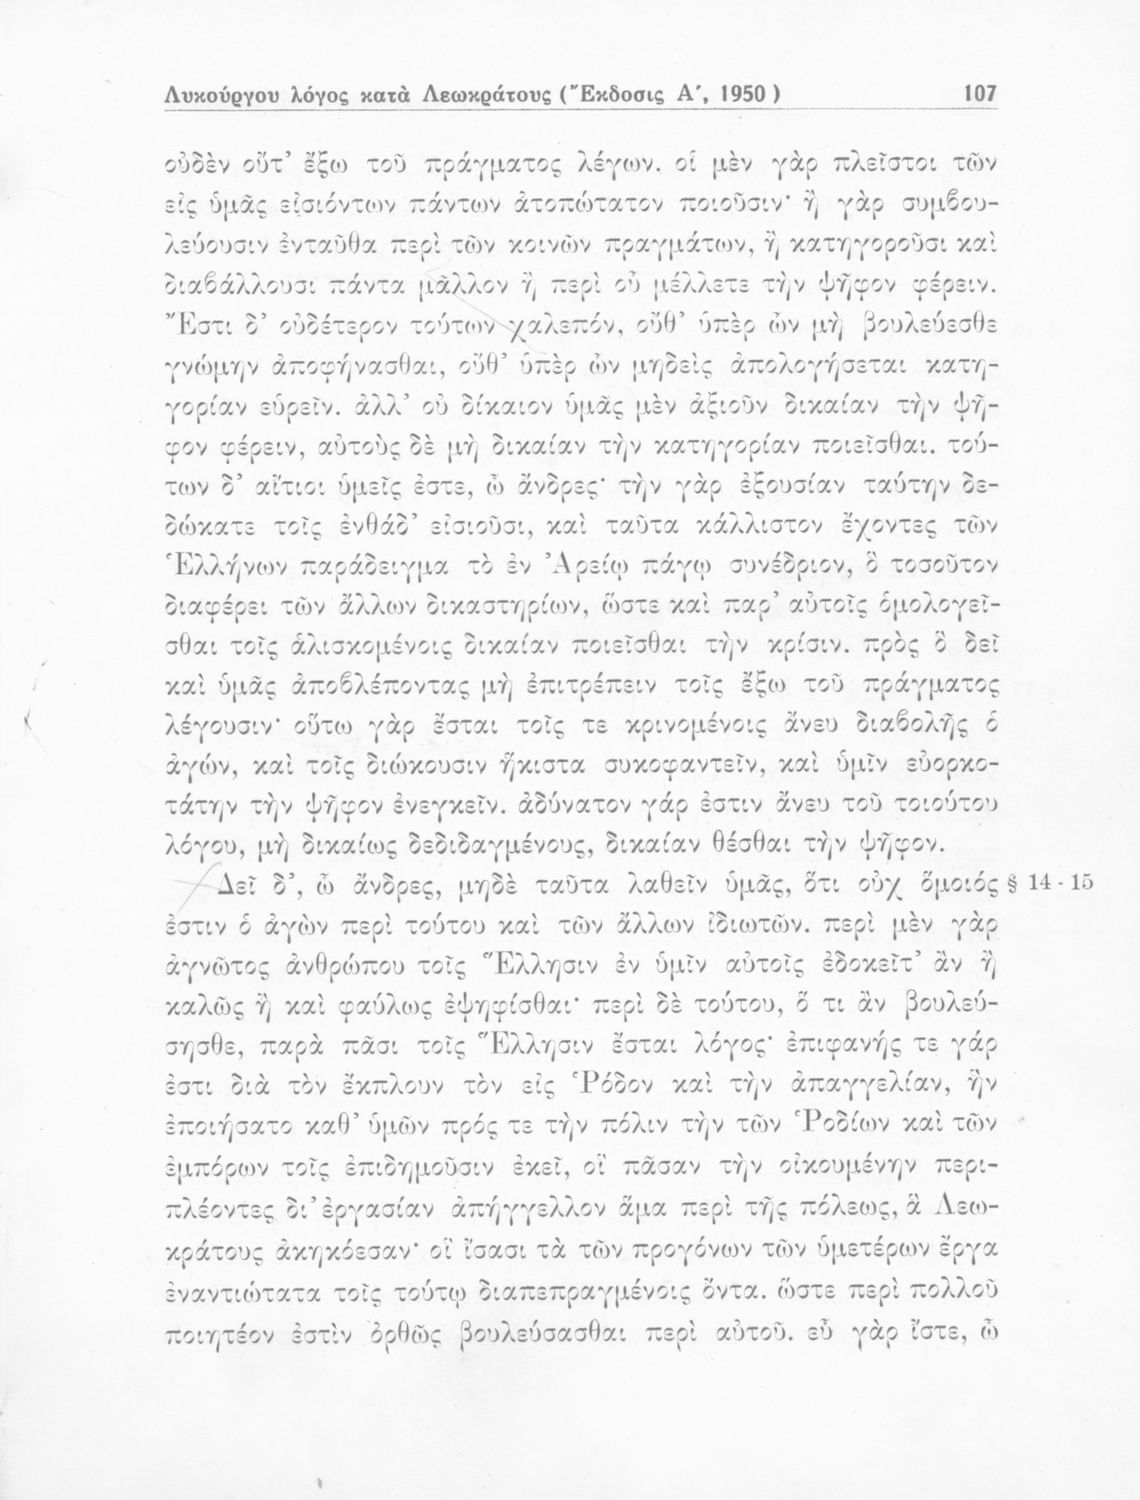 Λυκούργου λόγος κατὰ Λεωκράτους (Ἔκδοσις Α΄, 1950) 107
οὐδὲν οὔτ’ ἔξω τοῦ πράγματος λέγων. οἱ μὲν γὰρ πλεῖστοι τῶν
εἰς ὑμᾶς εἰσιόντων πάντων ἀτοπώτατον ποιοῦσιν· ἢ γὰρ συμβου-
λεύουσιν ἐνταῦθα περὶ τῶν κοινῶν πραγμάτων, ἢ κατηγοροῦσι καὶ
διαβάλλουσι πάντα μᾶλλον ἢ περὶ οὗ μέλλετε τὴν ψῆφον φέρειν.
Ἔστι δ’ οὐδέτερον τούτων χαλεπόν, οὔθ’ ὑπὲρ ὧν μὴ βουλεύεσθε
γνώμην ἀποφήνασθαι, οὔθ’ ὑπὲρ ὧν μηδεὶς ἀπολογήσεται κατη-
γορίαν εὑρεῖν. ἀλλ’ οὐ δίκαιον ὑμᾶς μὲν ἀξιοῦν δικαίαν τὴν ψῆ-
φον φέρειν, αὐτοὺς δὲ μὴ δικαίαν τὴν κατηγορίαν ποιεῖσθαι. τού-
των δ’ αἴτιοι ὑμεῖς ἐστε, ὦ ἄνδρες· τὴν γὰρ ἐξουσίαν ταύτην δε-
δώκατε τοῖς ἐνθάδ’ εἰσιοῦσι, καὶ ταῦτα κάλλιστον ἔχοντες τῶν
Ἑλλήνων παράδειγμα τὸ ἐν Ἀρείῳ πάγῳ συνέδριον, ὃ τοσοῦτον
διαφέρει τῶν ἄλλων δικαστηρίων, ὥστε καὶ παρ’ αὐτοῖς ὁμολογεῖ-
σθαι τοῖς ἁλισκομένοις δικαίαν ποιεῖσθαι τὴν κρίσιν. πρὸς ὃ δεῖ
καὶ ὑμᾶς ἀποβλέποντας μὴ ἐπιτρέπειν τοῖς ἔξω τοῦ πράγματος
λέγουσιν· οὕτω γὰρ ἔσται τοῖς τε κρινομένοις ἄνευ διαβολῆς ὁ
ἀγών, καὶ τοῖς διώκουσιν ἥκιστα συκοφαντεῖν, καὶ ὑμῖν εὐορκο-
τάτην τὴν ψῆφον ἐνεγκεῖν. ἀδύνατον γάρ ἐστιν ἄνευ τοῦ τοιούτου
λόγου, μὴ δικαίως δεδιδαγμένους, δικαίαν θέσθαι τὴν ψῆφον.
Δεῖ δ’, ὦ ἄνδρες, μηδὲ ταῦτα λαθεῖν ὑμᾶς, ὅτι οὐχ ὅμοιός § 14 - 15
ἐστιν ὁ ἀγὼν περὶ τούτου καὶ τῶν ἄλλων ἰδιωτῶν. περὶ μὲν γὰρ
ἀγνῶτος ἀνθρώπου τοῖς Ἕλλησιν ἐν ὑμῖν αὐτοῖς ἐδοκεῖτ’ ἂν ἢ
καλῶς ἢ καὶ φαύλως ἐψηφίσθαι· περὶ δὲ τούτου, ὅ τι ἂν βουλεύ-
σησθε, παρὰ πᾶσι τοῖς Ἕλλησιν ἔσται λόγος· ἐπιφανής τε γάρ
ἐστι διὰ τὸν ἔκπλουν τὸν εἰς Ῥόδον καὶ τὴν ἀπαγγελίαν, ἣν
ἐποιήσατο καθ’ ὑμῶν πρός τε τὴν πόλιν τὴν τῶν Ῥοδίων καὶ τῶν
ἐμπόρων τοῖς ἐπιδημοῦσιν ἐκεῖ, οἳ πᾶσαν τὴν οἰκουμένην περι-
πλέοντες δι’ ἐργασίαν ἀπήγγελλον ἅμα περὶ τῆς πόλεως, ἃ Λεω-
κράτους ἀκηκόεσαν· οἳ ἴσασι τὰ τῶν προγόνων τῶν ὑμετέρων ἔργα
ἐναντιώτατα τοῖς τούτῳ διαπεπραγμένοις ὄντα. ὥστε περὶ πολλοῦ
ποιητέον ἐστὶν ὀρθῶς βουλεύσασθαι περὶ αὐτοῦ. εὖ γὰρ ἴστε, ὦ